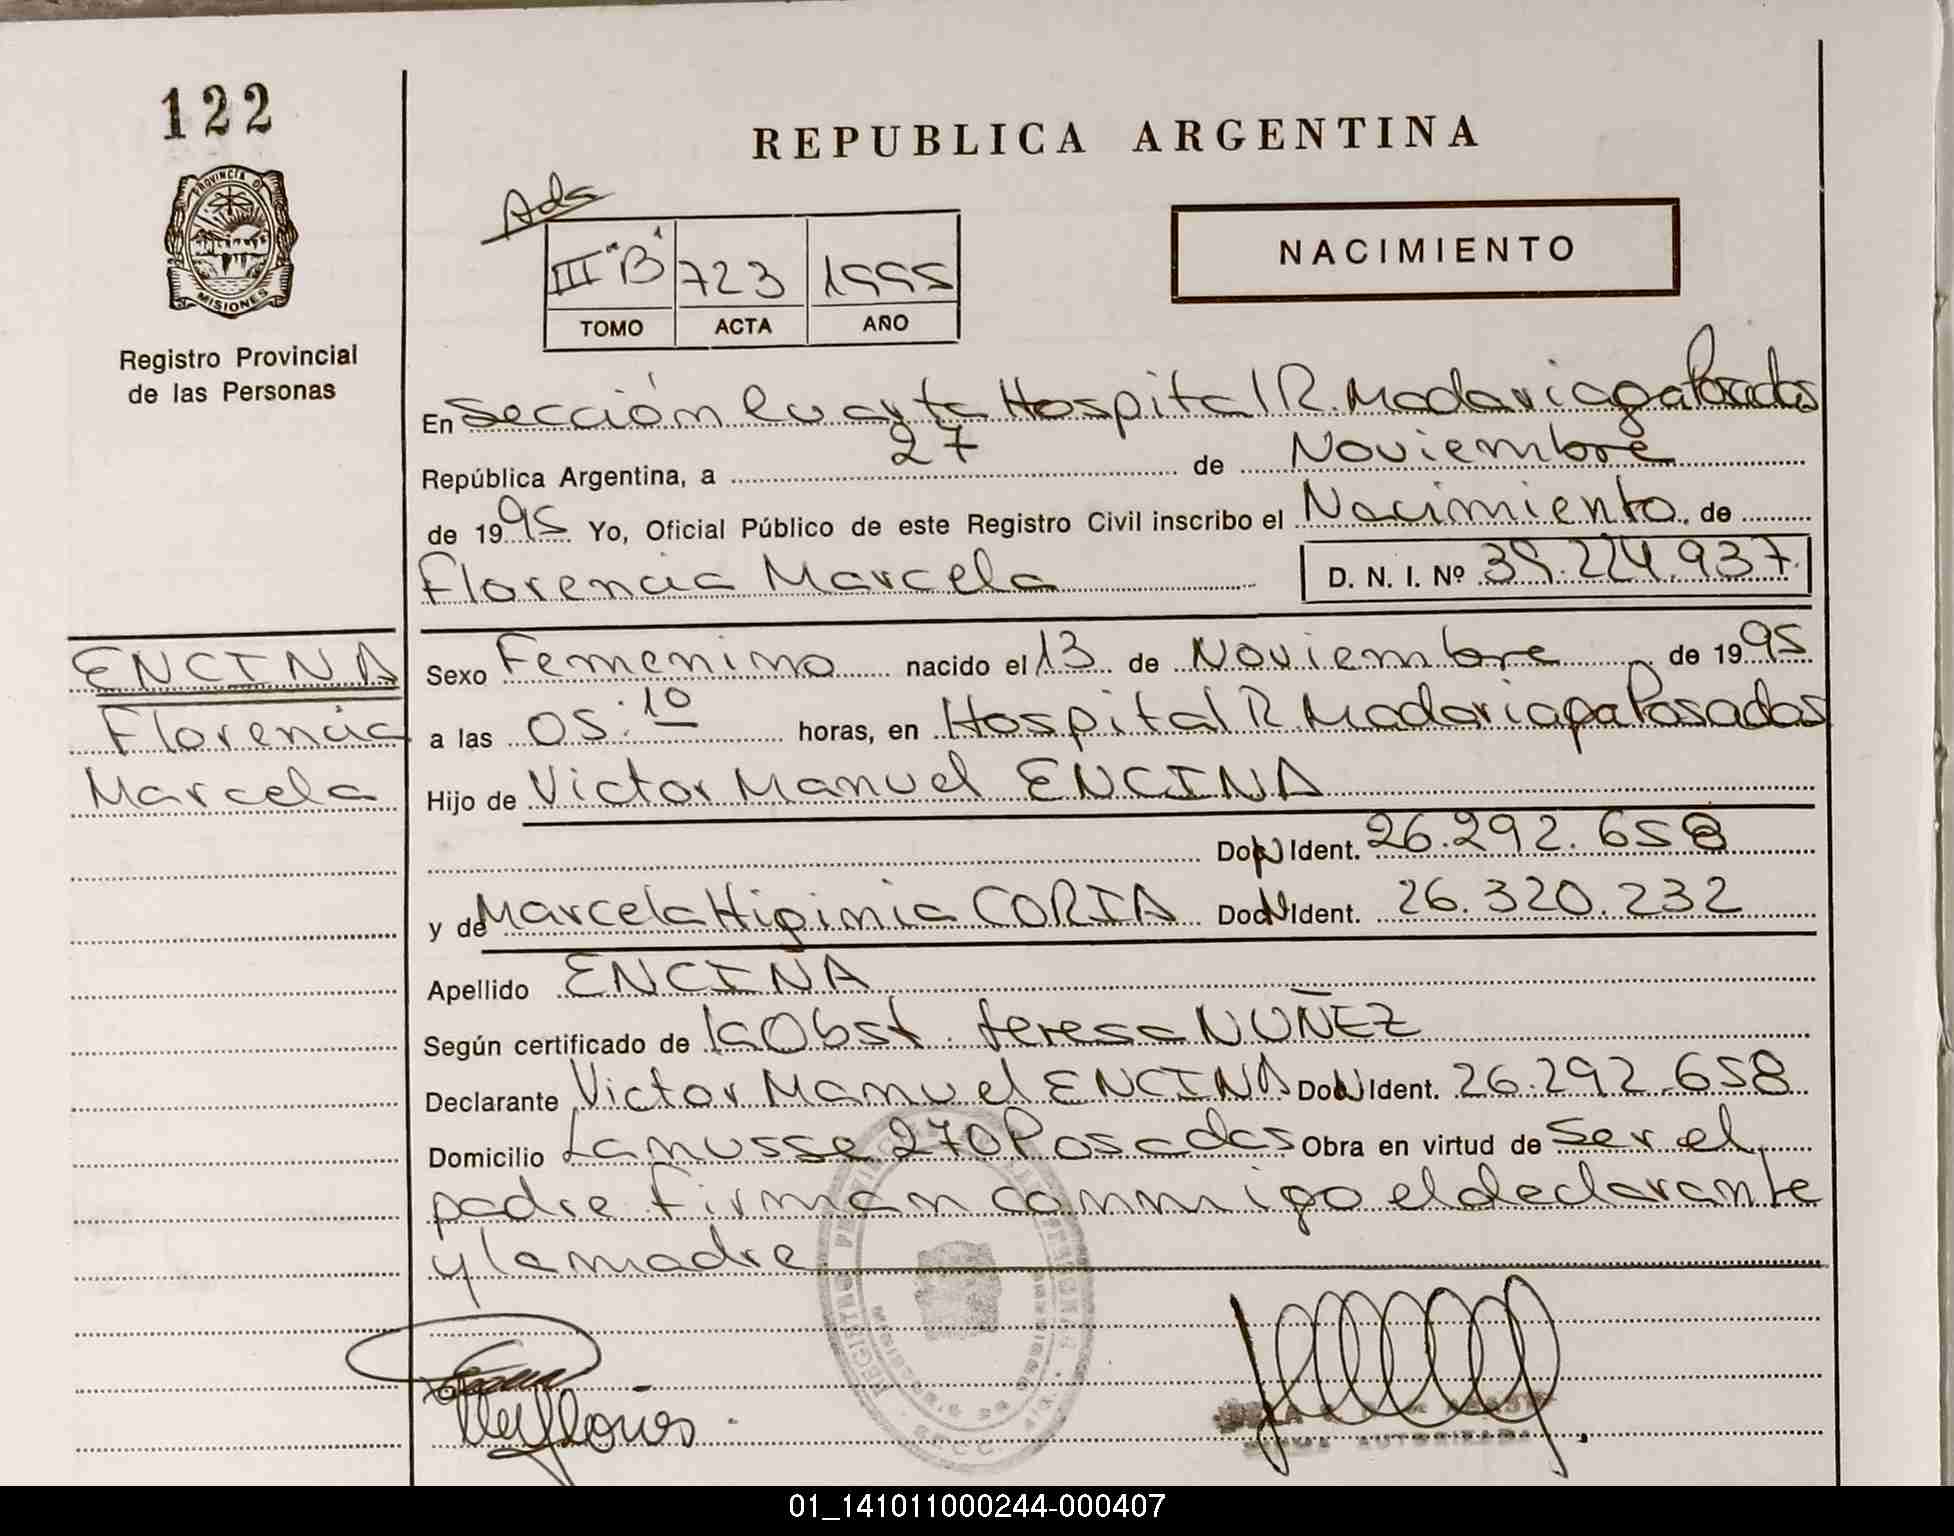 122
REPUBLICA ARGENTINA
PROVINCIA DE
MISIONES
Registro Provincial
de las Personas
Ads
III "B" 723 1995
TOMO ACTA AÑO
NACIMIENTO
En Sección Cuarta Hospital R. Madariaga Posadas
República Argentina, a 27 de Noviembre
de 1995 Yo, Oficial Público de este Registro Civil inscribo el Nacimiento de
Florencia Marcela D. N. I. Nº 39.224.937.
ENCINA
Florencia
Marcela
Sexo Femenino nacido el 13 de Noviembre de 1995
a las 05:10 horas, en Hospital R. Madariaga Posadas
Hijo de Victor Manuel ENCINA
Doc N Ident. 26.292.658
y de Marcela Higinia CORIA Doc N Ident. 26.320.232
Apellido ENCINA
Según certificado de la Obst. Teresa NUÑEZ
Declarante Victor Manuel ENCINA Doc N Ident. 26.292.658
Domicilio Lanusse 270 Posadas Obra en virtud de Ser el
padre firman conmigo el declarante
y la madre
REGISTRO PROVINCIAL
01_141011000244-000407